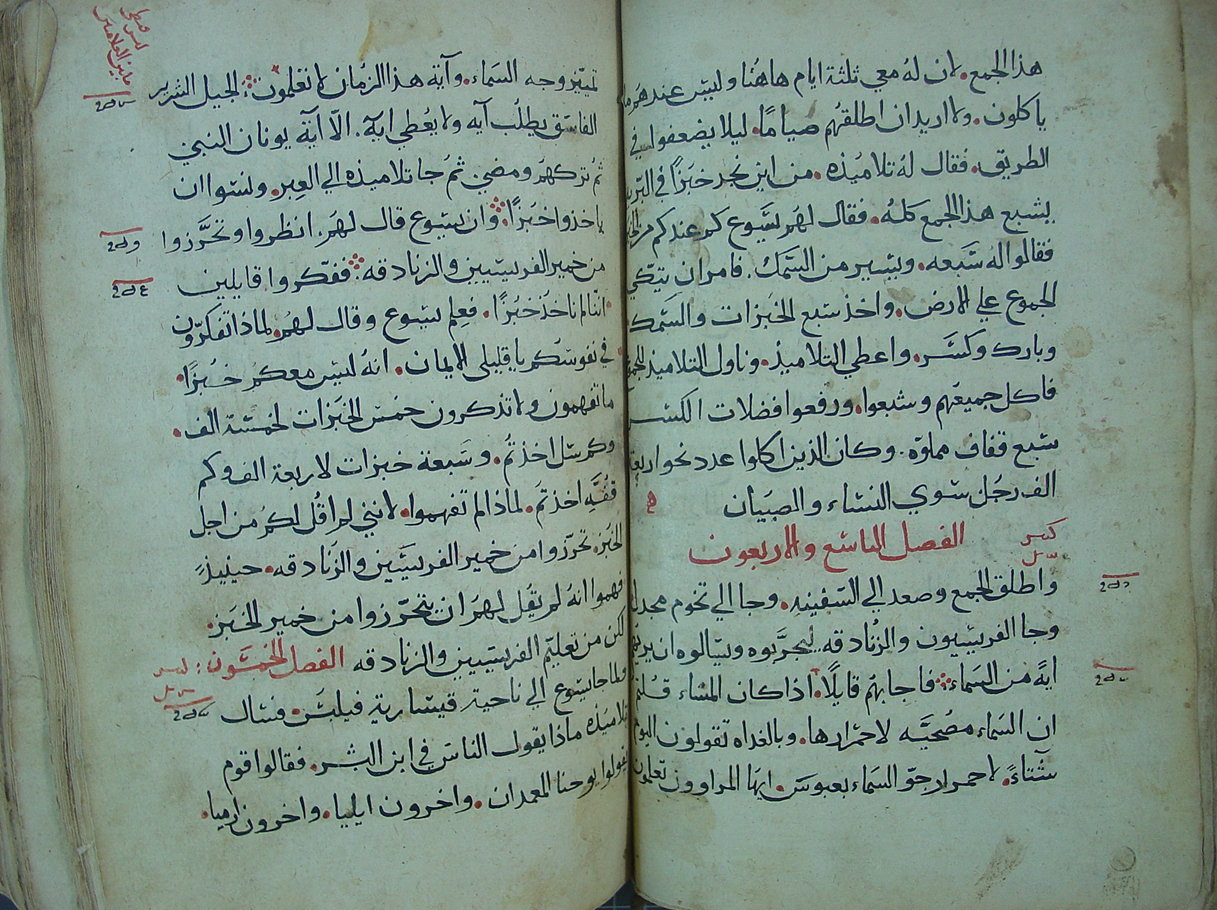 هذا الجمع. لان لهُ معي ثلثة ايام هاهُنا وليسَ عندهم ما
ياكلون. ولا اريد ان اطلقهُم صيامًا. ليلا يضعفوا في
الطريق. فقال لهُ تلاميُذه. من اين نجد خبَزًا في البّريه
يشبع هذا الجمع كلهُ. فقال لهُم يسَّوع كم عندكم من الخبز
فقالوا لهُ سَبعه. ويسَير من السَمك. فامر ان يتكي
الجموع علي الارض. واخذ سَبع الخبَزات والسَمك
وبارك وكسَّر. واعطي التلاميذ. وناول التلاميذ للجمع
فاكل جميعهُم وشبعوا. ورفعوا فضلات الكسَر
سَبع قفاف مملوّه. وكان الذين اكلوا عدد نحو اربعة
الف رجَل سَوي النسَاء والصبَيان
الفصل التاسَع والاربعون
واطلق الجمع وصعد الي السَفينهِ. وجا الي تخوم مجدل
وجا الفريسَيون والزُنادقه ليجرّبوه ويسَالوه ان يريهم
ايةً من السَماء. فاجابهُم قايلًا. اذا كان المسَاء قلُتم
ان السَماء مصُحيَّه لاحمَرارها. وبالغداه تقولون اليوم
شَتاءً. لاحمرار جوّ السَماء بعبوسَ. ايهَا المراوون تعلمون
تمييَز وجه السَماء. وآية هذا الزمُان لا تعَلمون. الجيل الشرير
الفاسَق يطلُب آيه ولا يعُطي ايَة. الّا آيَة يونان النبي
ثمُ تركهمَ ومضيَ ثمُ جا تلاميذه الي العِبر. ونسَوا ان
ياخذوا خبَزًا. وان يسَوع قال لهمَ. انظروا وتحرَّزوا
من خمير الفريسَيين والزنادقه. ففكّروا قايلين
اننا لم ناخذ خبُزًا. فعلِم يسَوع وقال لهمُ. لماذا تفكرّون
في نفوسَكم يا قليلي الايمان. انهُ ليسَ معكم خبُزًا.
ما تفهمون ولا تذكرون خمسَ الخبَزات لخمسَة الف.
وكم سَل اخذتُم. وسَبعة خبزات لاربعة الف وكم
قفُّهِ اخذتَم. لماذا لم تفهموا. لانني لم اقُل لكمُ من اجل
الخبَز. تحرّزوا من خمير الفريسَيين والزَنادقه. حينيذٍ
فهموا انهُ لم يقُل لهمَ ان يتحَرّزوا من خمير الخبَز.
لكن من تعليَم الفريسَيين والزنادقه الفصل الخمسَون
ولما جا يسَوع الي ناحية قيسَارية فيلبسَ. فسَال
تلاميَذه ماذا يقول الناسَ في ابن البشَر. فقالوا قوم
يقولوا يوحنا المعمدان. واخرون ايليا. واخرون ارميا.